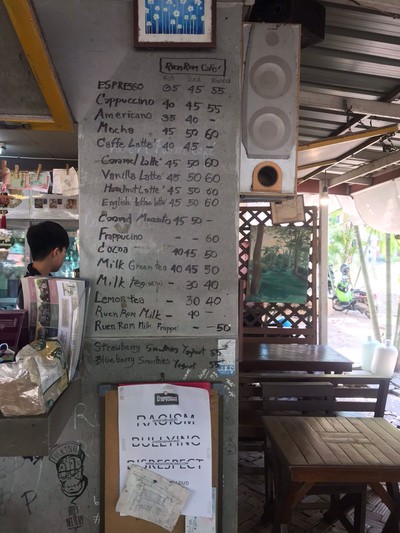 Ruen Rom Cafe'
Hot Iced Blended
ESPRESSO 35 45 55
Cappuccino 40 45 55
Americano 35 40 -
Mocha 45 50 60
Caffe Latte' 40 45 -
Caramel Latte' 45 50 60
Vanilla Latte' 45 50 60
Hazelnut Latte' 45 50 60
English toffee latte 45 50 60
Caramel Macciato 45 50 -
Frappucino - - 60
Cocoa 40 45 50
Milk Green tea 40 45 50
Milk tea - 30 40
Lemon tea - 30 40
Ruen Rom Milk - 40 -
Ruen Rom Milk Frappe - - 50
Strawberry Smoothies Yoghurt 55
Blueberry Smoothies Yogurt 55
RACISM
BULLYING
DISRESPECT